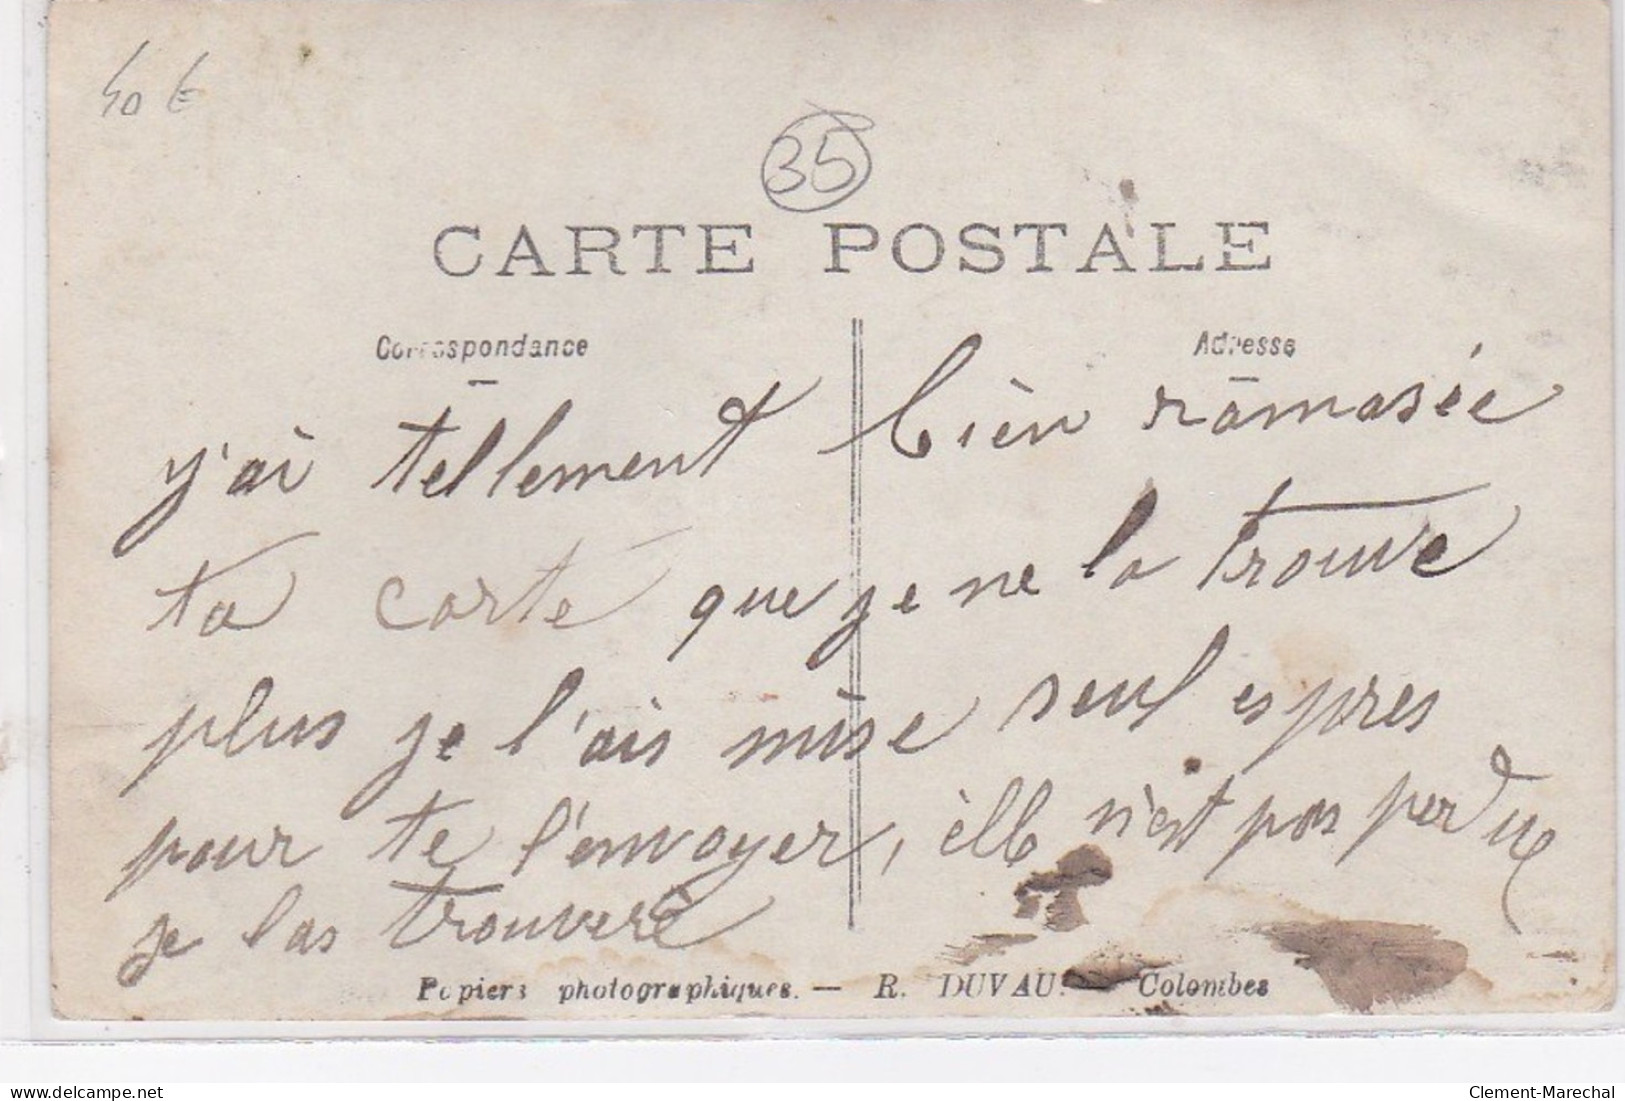 40 €
35
CARTE POSTALE
Correspondance
Adresse
j'ai tellement bièn ramasée
ta carte que je ne la trouve
plus je l'ais mise seul espres
pour te l'envoyer, èlle n'est pas perdue
je las trouverè
Papiers photographiques. — R. DUVAU. — Colombes
delcampe.net
Clement-Marechal